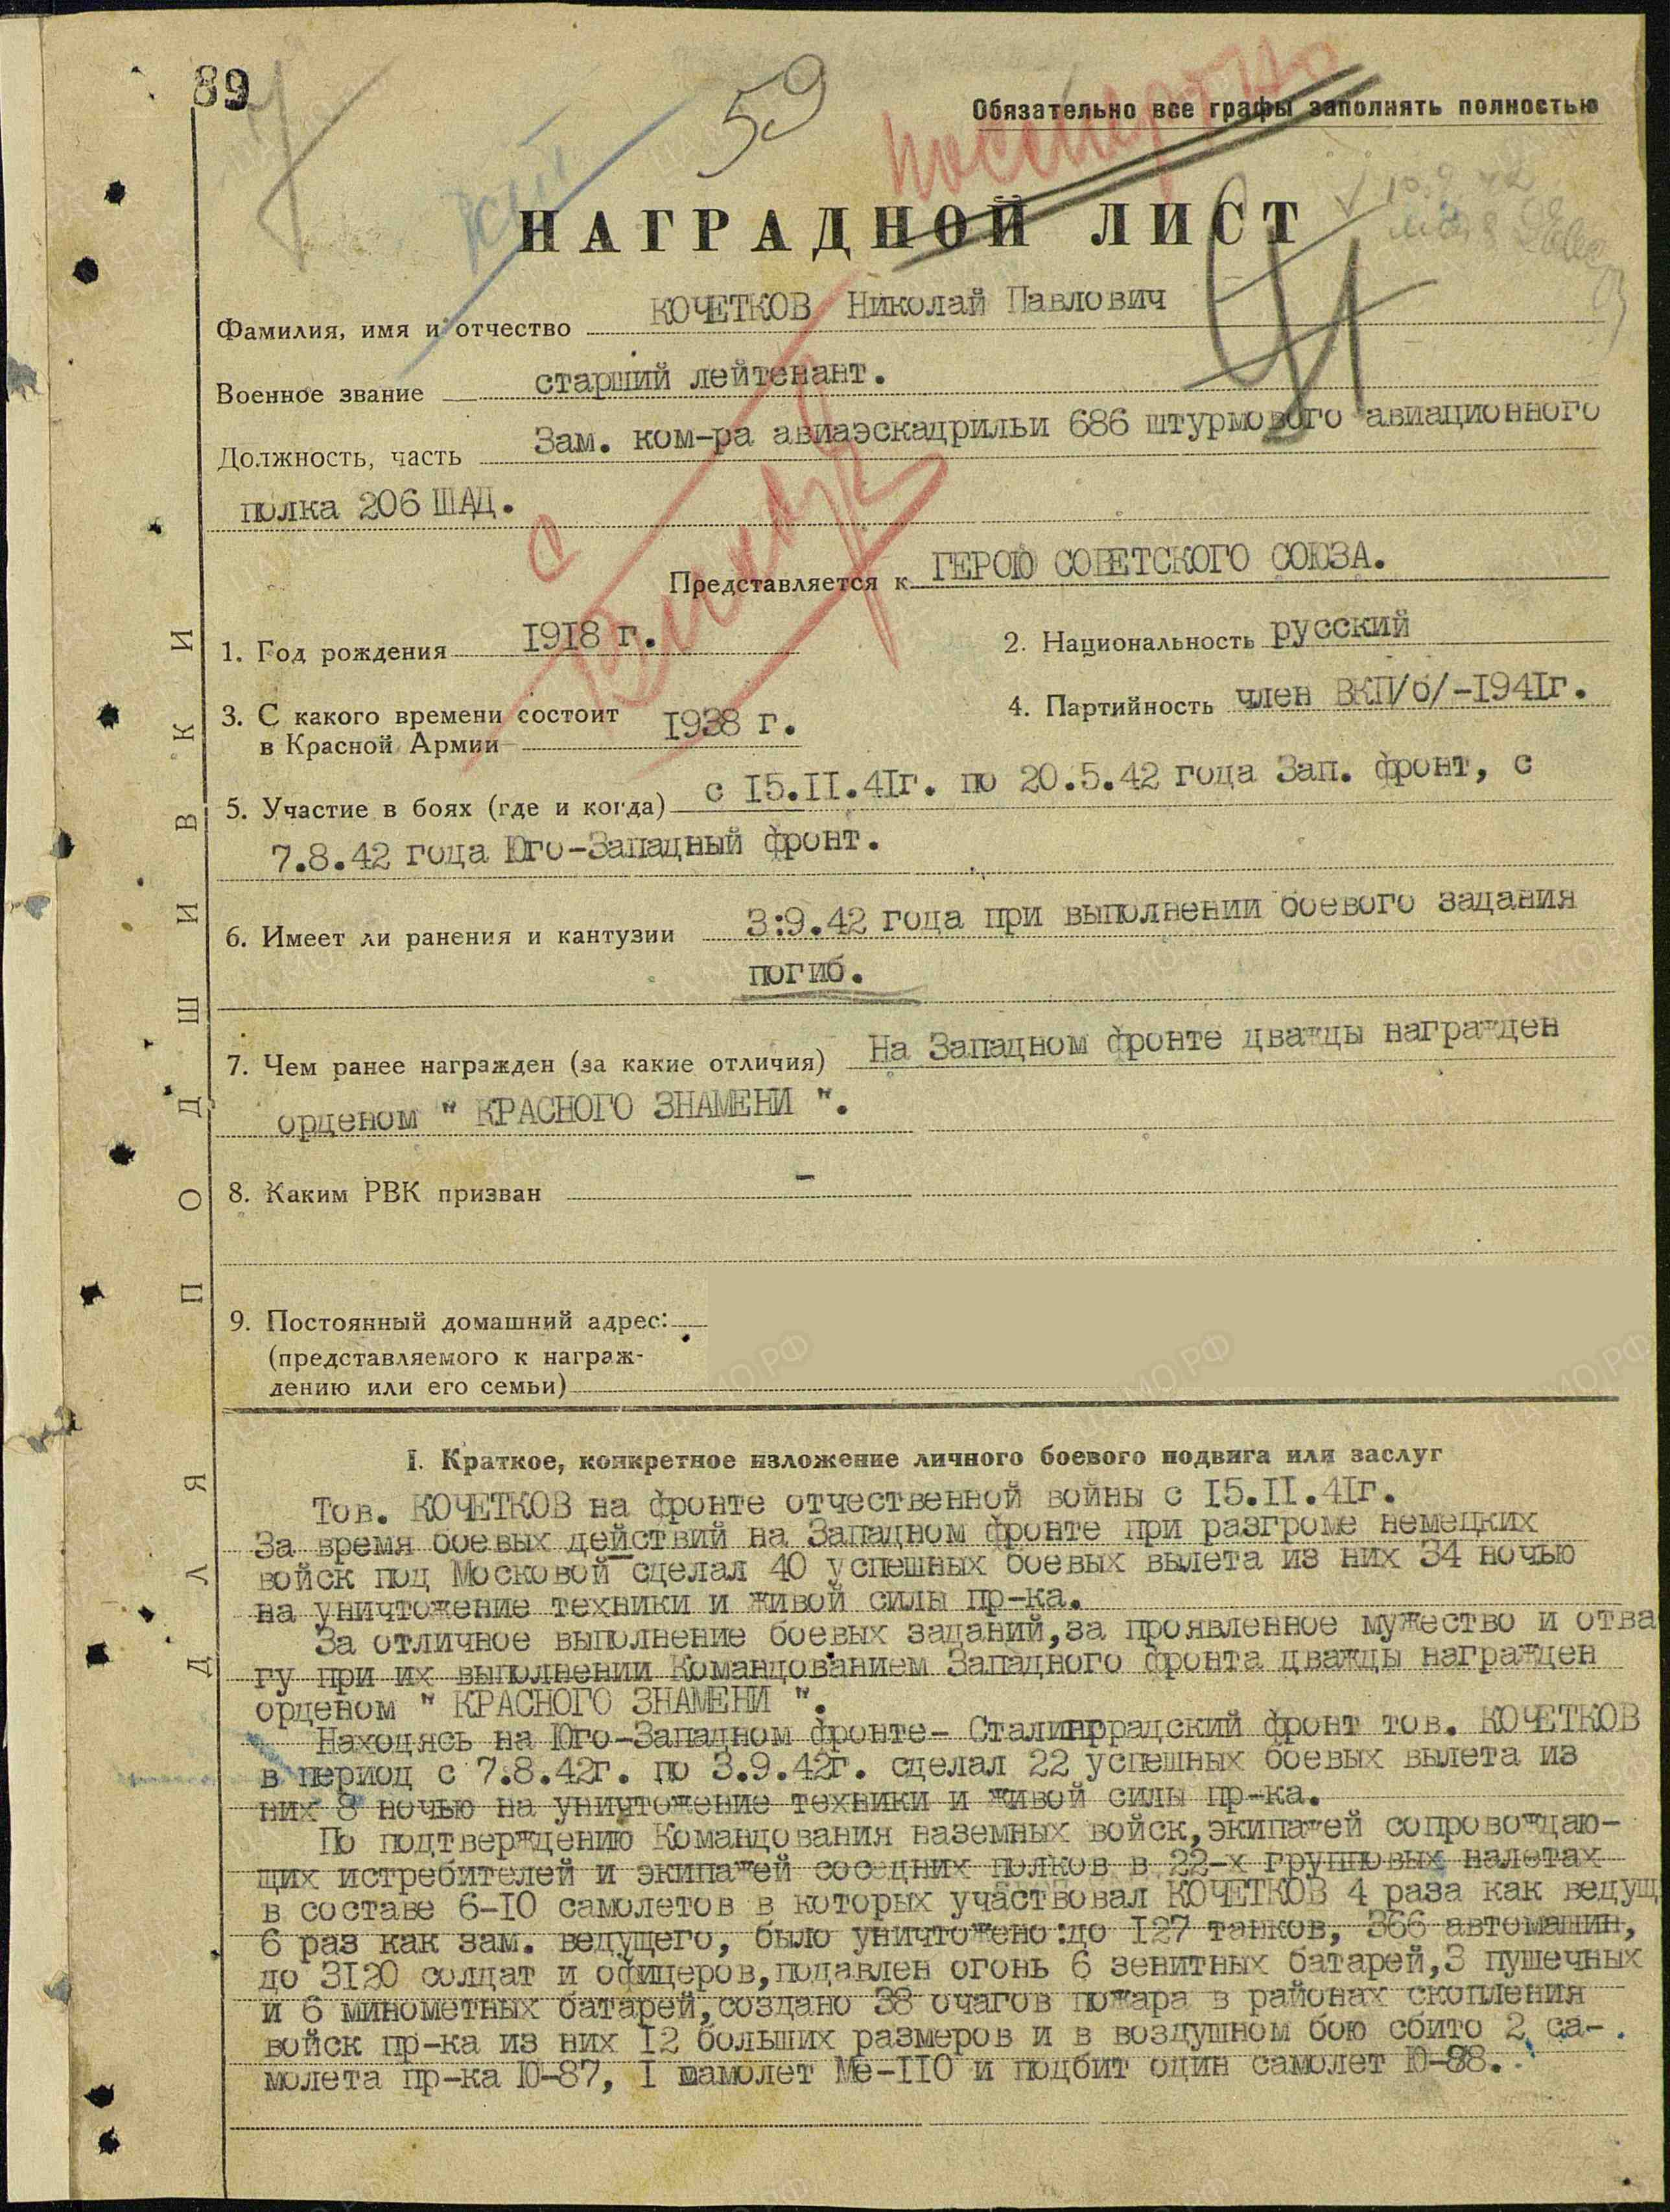 89
59
посмертно
Обязательно все графы заполнять полностью
НАГРАДНОЙ ЛИСТ
Фамилия, имя и отчество КОЧЕТКОВ Николай Павлович
Военное звание старший лейтенант.
Должность, часть Зам. ком-ра авиаэскадрильи 686 штурмового авиационного
полка 206 ШАД.
Представляется к ГЕРОЮ СОВЕТСКОГО СОЮЗА.
1. Год рождения 1918 г.
2. Национальность русский
3. С какого времени состоит
в Красной Армии 1938 г.
4. Партийность член ВКП/б/-1941г.
5. Участие в боях (где и когда) с 15.II.41г. по 20.5.42 года Зап. фронт, с
7.8.42 года Юго-Западный фронт.
6. Имеет ли ранения и кантузии 3:9.42 года при выполнении боевого задания
погиб.
7. Чем ранее награжден (за какие отличия) На Западном фронте дважды награжден
орденом " КРАСНОГО ЗНАМЕНИ ".
8. Каким РВК призван -
9. Постоянный домашний адрес:
(представляемого к награж-
дению или его семьи)
I. Краткое, конкретное изложение личного боевого подвига или заслуг
Тов. КОЧЕТКОВ на фронте отчественной войны с I5.II.41г.
За время боевых действий на Западном фронте при разгроме немецких
войск под Московой сделал 40 успешных боевых вылета из них 34 ночью
на уничтожение техники и живой силы пр-ка.
За отличное выполнение боевых заданий,за проявленное мужество и отва
гу при их выполнении Командованием Западного фронта дважды награжден
орденом " КРАСНОГО ЗНАМЕНИ ".
Находясь на Юго-Западном фронте- Сталинградский фронт тов. КОЧЕТКОВ
в период с 7.8.42г. по 3.9.42г. сделал 22 успешных боевых вылета из
них 8 ночью на уничтожение техники и живой силы пр-ка.
По подтверждению Командования наземных войск,экипажей сопровождаю-
щих истребителей и экипажей соседних полков в 22-х групповых налетах
в составе 6-IO самолетов в которых участвовал КОЧЕТКОВ 4 раза как ведущ
6 раз как зам. ведущего, было уничтожено:до I27 танков, 366 автомашин,
до 3I20 солдат и офицеров,подавлен огонь 6 зенитных батарей,3 пушечных
и 6 минометных батарей,создано 38 очагов пожара в районах скопления
войск пр-ка из них I2 больших размеров и в воздушном бою сбито 2 са-
молета пр-ка Ю-87, I шамолет Ме-IIO и подбит один самолет Ю-88.
ДЛЯ ПОДШИВКИ